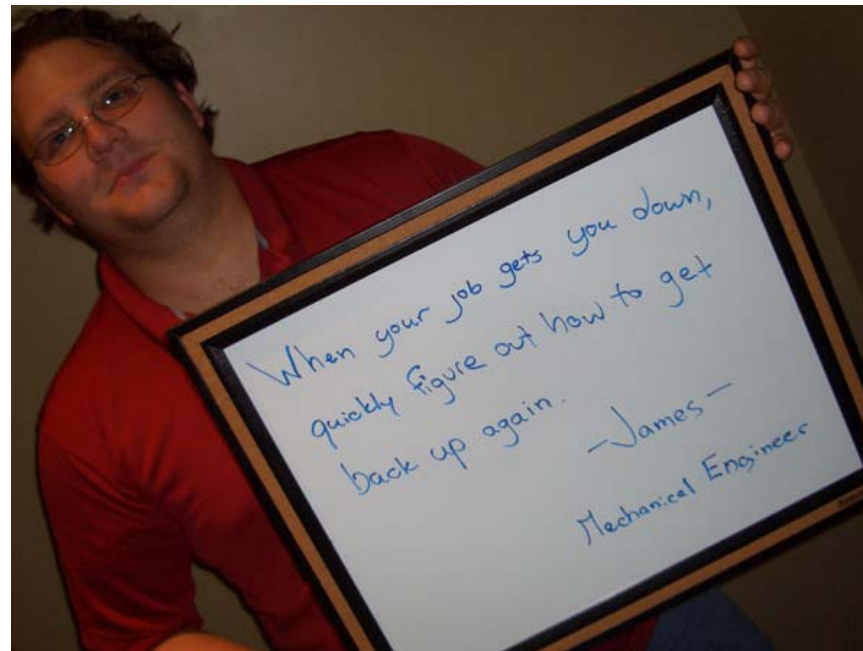 When your job gets you down,
quickly figure out how to get
back up again.
-James-
Mechanical Engineer